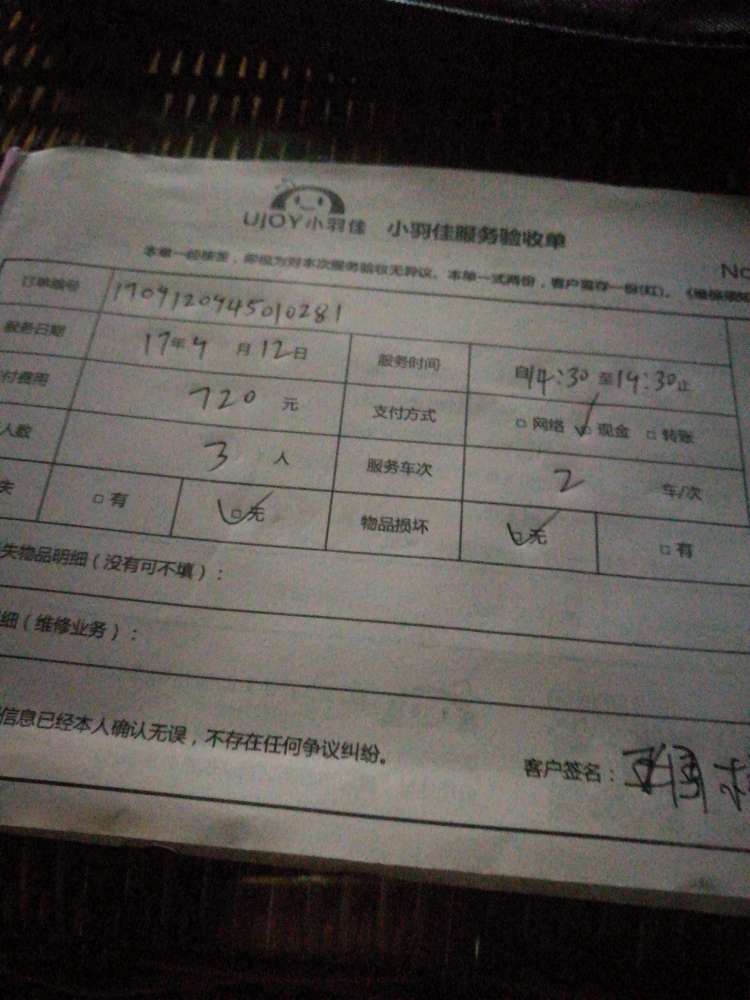 UJOY小羽佳 小羽佳服务验收单
No
本单一经签签，即视为对本次服务验收无异议。本单一式两份，客户留存一份(红)。
订单编号 1709120945010281
服务日期 17年9月12日 服务时间 自14:30至19:30止
付费用 720元 支付方式 □网络 □现金 □转账
人数 3人 服务车次 2车/次
失 □有 □无 物品损坏 □无 □有
失物品明细（没有可不填）：
细（维修业务）：
信息已经本人确认无误，不存在任何争议纠纷。
客户签名：